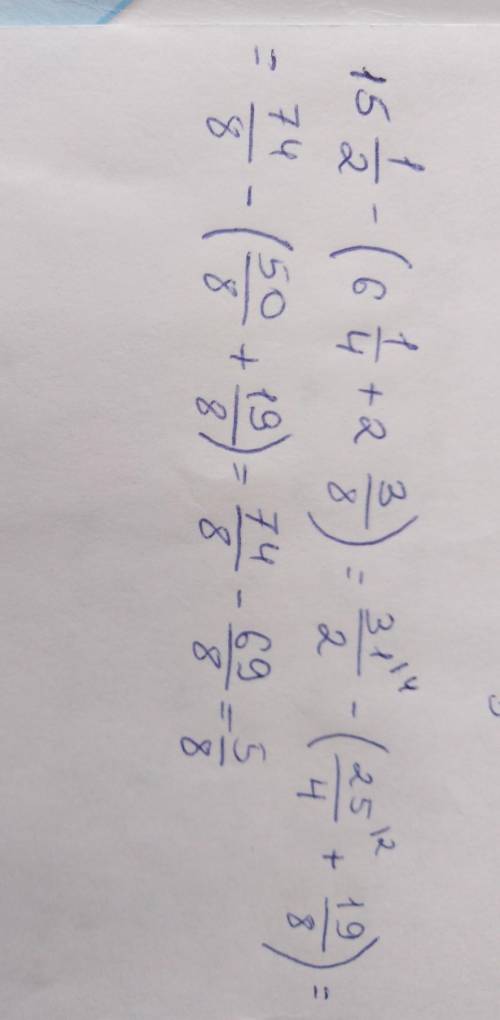 15 1/2 - (6 1/4 + 2 3/8) = 31/2 \4 - (25/4 \2 + 19/8) =
= 74/8 - (50/8 + 19/8) = 74/8 - 69/8 = 5/8